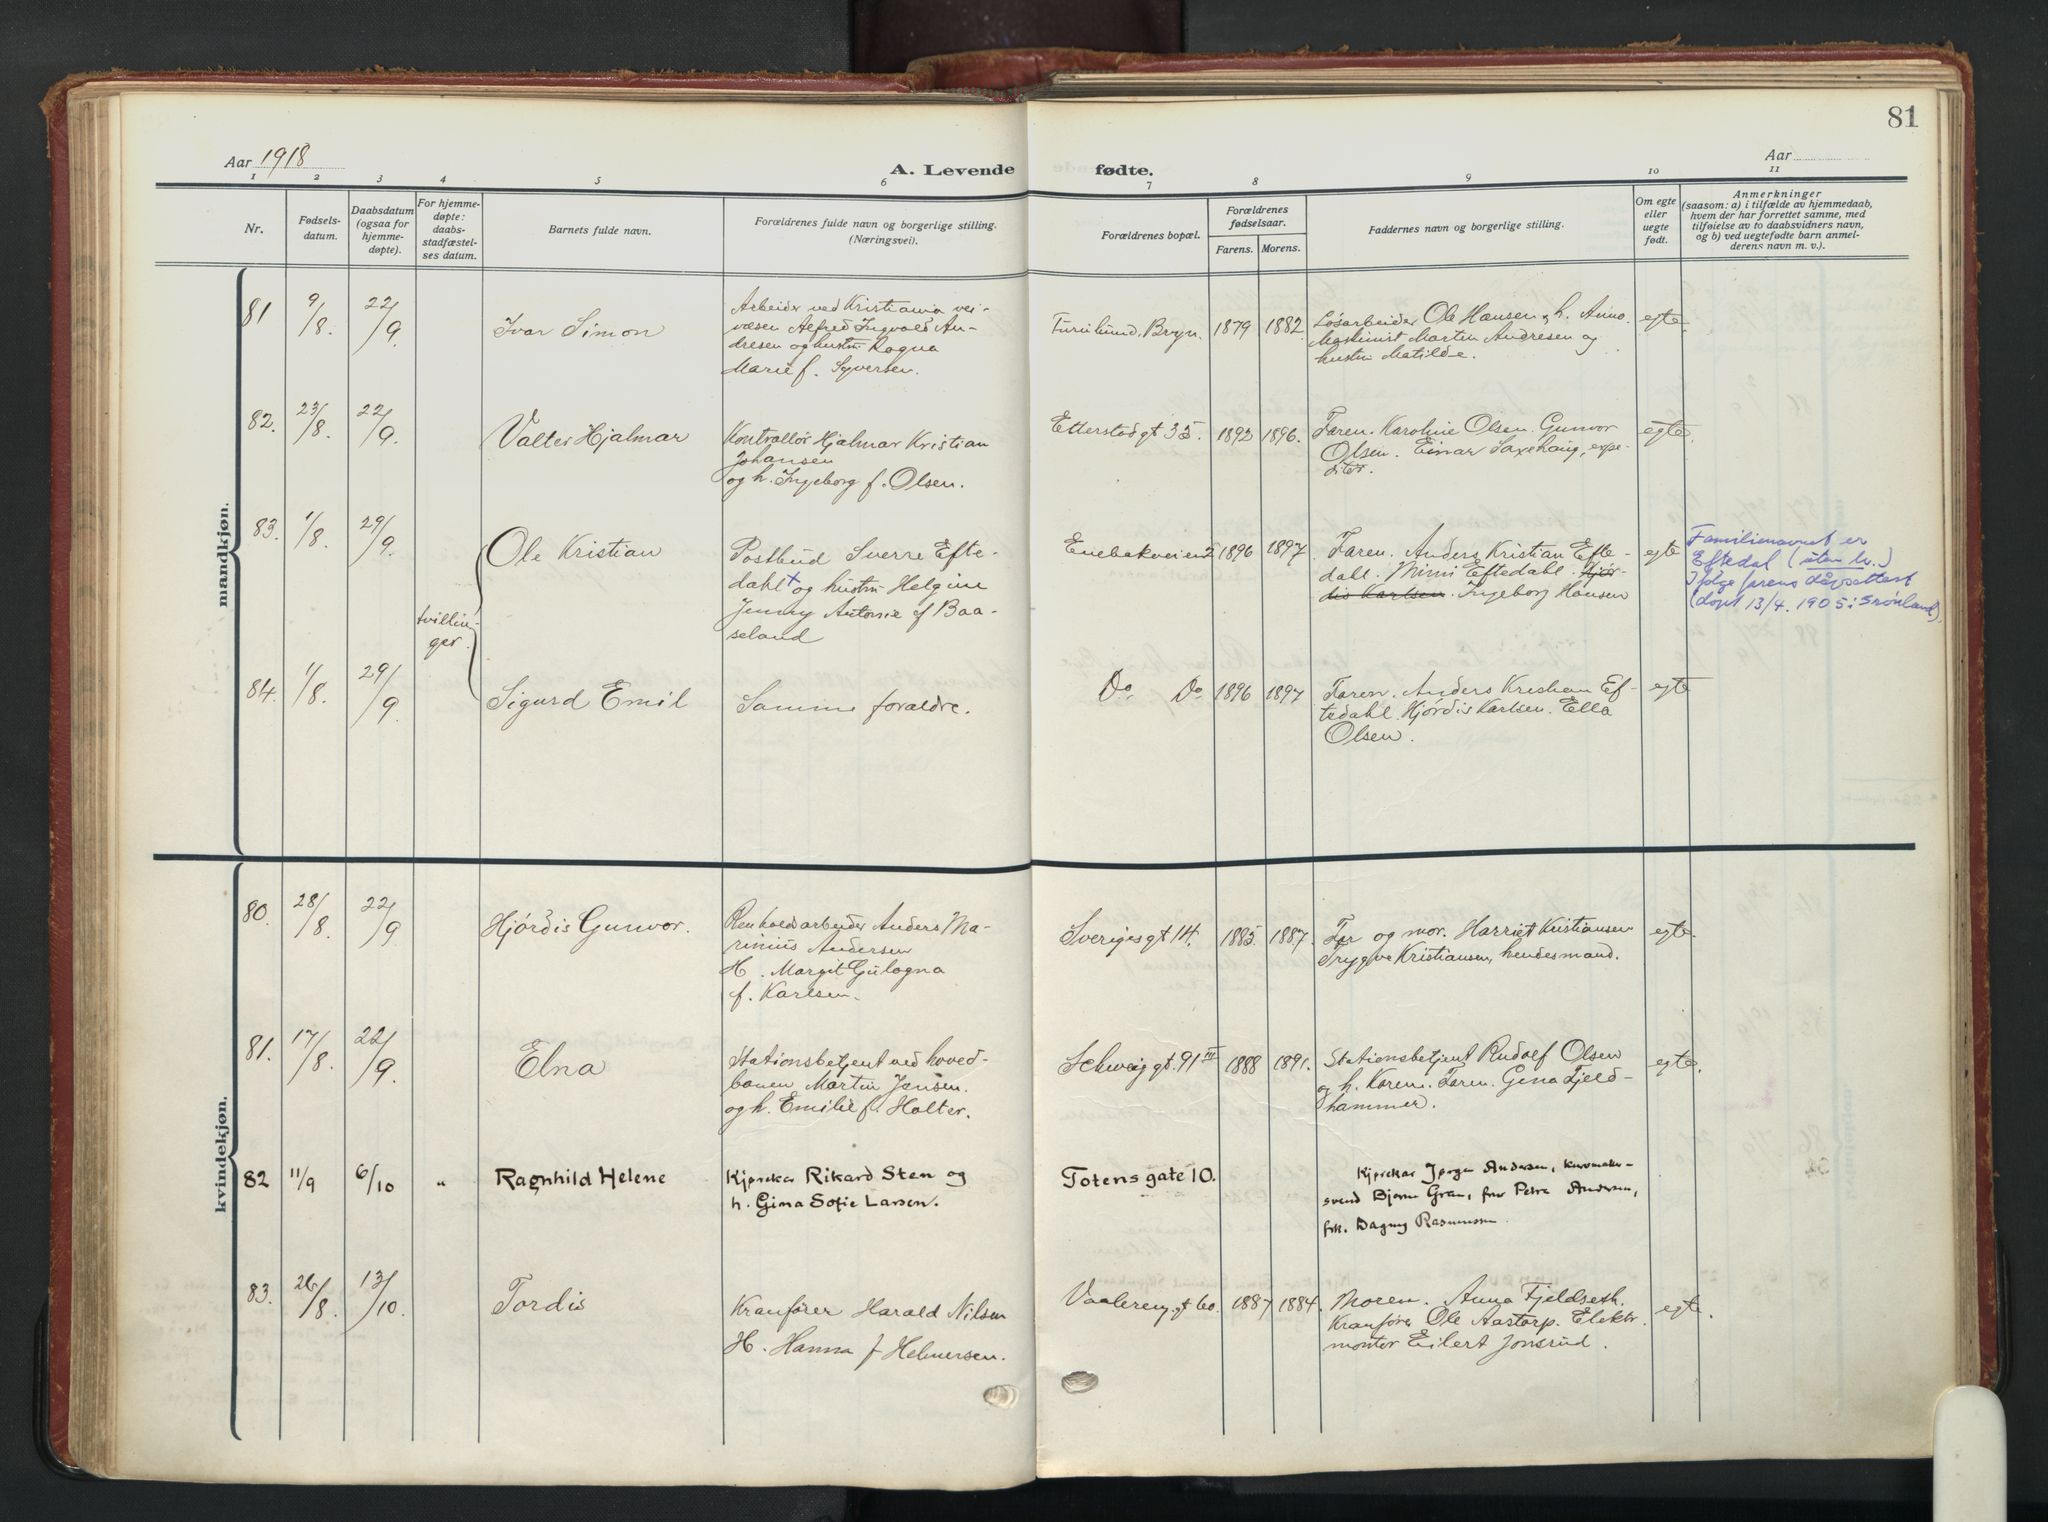 81
Aar 1918
A. Levende fødte.
Aar
1 2 3 4 5 6 7 8 9 10 11
Nr.
Fødsels-
datum.
Daabsdatum
(ogsaa for
hjemme-
døpte).
For hjemme-
døpte:
daabs-
stadfæstel-
ses datum.
Barnets fulde navn.
Forældrenes fulde navn og borgerlige stilling.
(Næringsvei).
Forældrenes bopæl.
Forældrenes
fødselsaar.
Farens. Morens.
Faddernes navn og borgerlige stilling.
Om egte
eller
uegte
født.
Anmerkninger
(saasom: a) i tilfælde av hjemmedaab,
hvem der har forrettet samme, med
tilføielse av to daabsvidners navn,
og b) ved uegtefødte barn anmel-
derens navn m. v.).
mandkjøn.
81 9/8. 22/9. Ivar Simon
Arbeider ved Kristiania vei-
væsen Alfred Ingvald An-
dresen og hustru Ragna
Marie f. Syversen.
Furulund, Bryn. 1879 1882
Løsarbeider Ole Hansen & h. Anna.
Maskinist Martin Andresen og
hustru Matilde.
egte.
82. 23/8. 22/9. Valter Hjalmar
Kontrollør Hjalmar Kristian
Johansen
og h. Ingeborg f. Olsen.
Etterstadgt 35. 1892 1896.
Faren. Karoline Olsen. Gunvor
Olsen. Einar Saxehaug, expe-
ditør.
egte.
83. 1/8. 29/9. Ole Kristian
Postbud Sverre Efte-
dahl + og hustru Helgine
Jenny Antonie f Baa-
seland
Enebakveien 2 1896 1897
Faren. Anders Kristian Efte-
dahl. Mimi Eftedahl. Hjør-
dis Karlsen. Ingeborg Hansen
egte
Familienavnet er
Eftedal (uten h.)
Ifølge farens dåpsattest
(døpt 13/4. 1905 i Grønland)
tvillin-
ger.
84. 1/8. 29/9. Sigurd Emil
Samme forældre.
Do Do 1896 1897
Faren. Anders Kristian Ef-
tedahl. Hjørdis Karlsen. Ella
Olsen.
egte
kvindekjøn.
80. 28/8. 22/9. Hjørdis Gunvor.
Renholdsarbeider Anders Ma-
rinius Andersen
H. Margit Gulagna
f. Karlsen.
Sverigesgt 14. 1885. 1887.
Far og mor. Harriet Kristiansen
Trygve Kristiansen, hendes mand.
egte.
81. 17/8. 22/9. Elna
Stationsbetjent ved hoved-
banen Martin Jensen.
og h. Emilie f. Holter.
Schweigt. 91 III 1888 1891.
Stationsbetjent Rudolf Olsen
og h. Karen. Faren. Gina Fjeld-
hammer.
egte.
82 11/9 6/10 " Ragnhild Helene
Kjørekar Rikard Sten og
h. Gina Sofie Larsen.
Totens gate 10.
Kjørekar Jørgen Andersen, kurvmaker-
svend Bjarne Gran, fru Petra Andersen,
frk. Dagny Rasmussen
83. 26/8. 13/10. Tordis
Kranfører Harald Nilsen
H. Hanna f Helmersen.
Vaalerengt 60. 1887 1884.
Moren. Anna Fjeldseth.
Kranfører Ole Aastorp. Elektr.
montør Eilert Jonsrud.
egte.